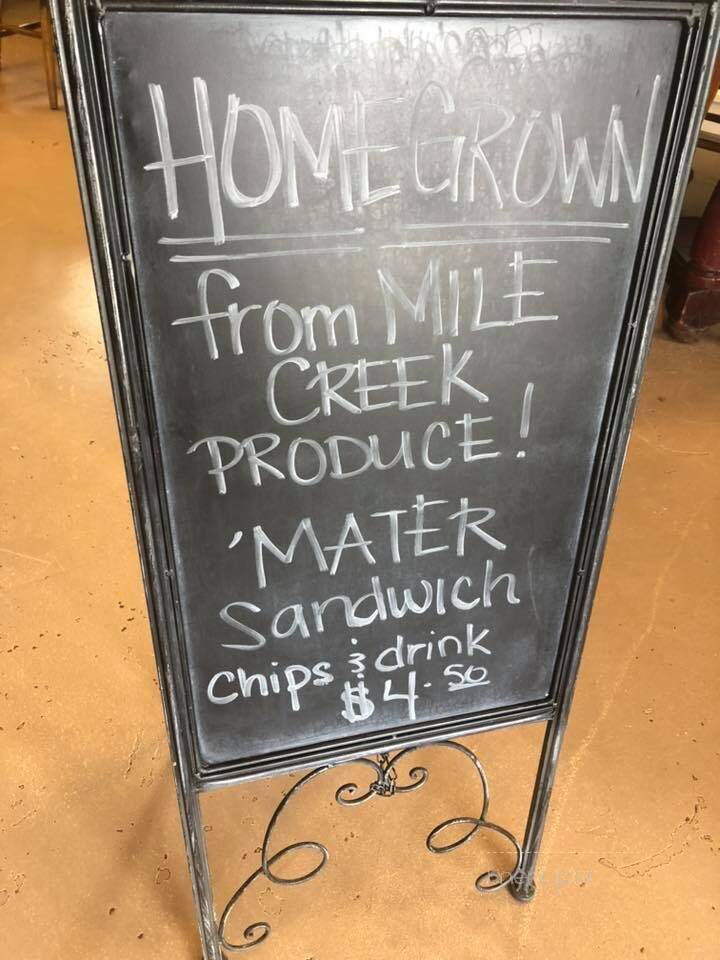 HOMEGROWN
from MILE
CREEK
PRODUCE!
'MATER
Sandwich
Chips & drink
$4.50